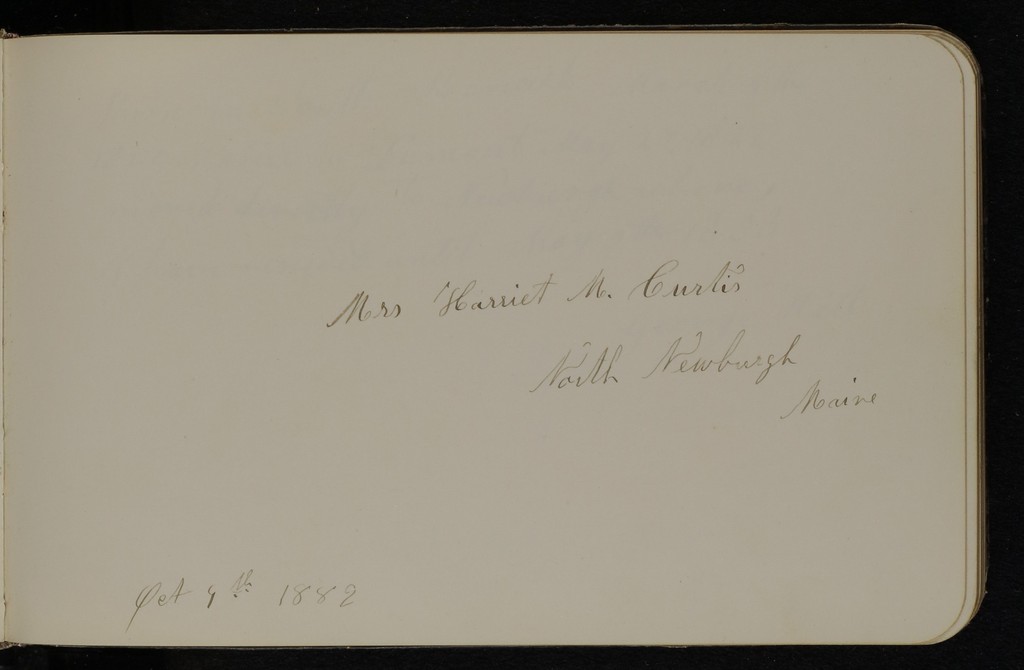 Mrs Harriet M. Curtis
North Newburgh
Maine
Oct 9th 1882